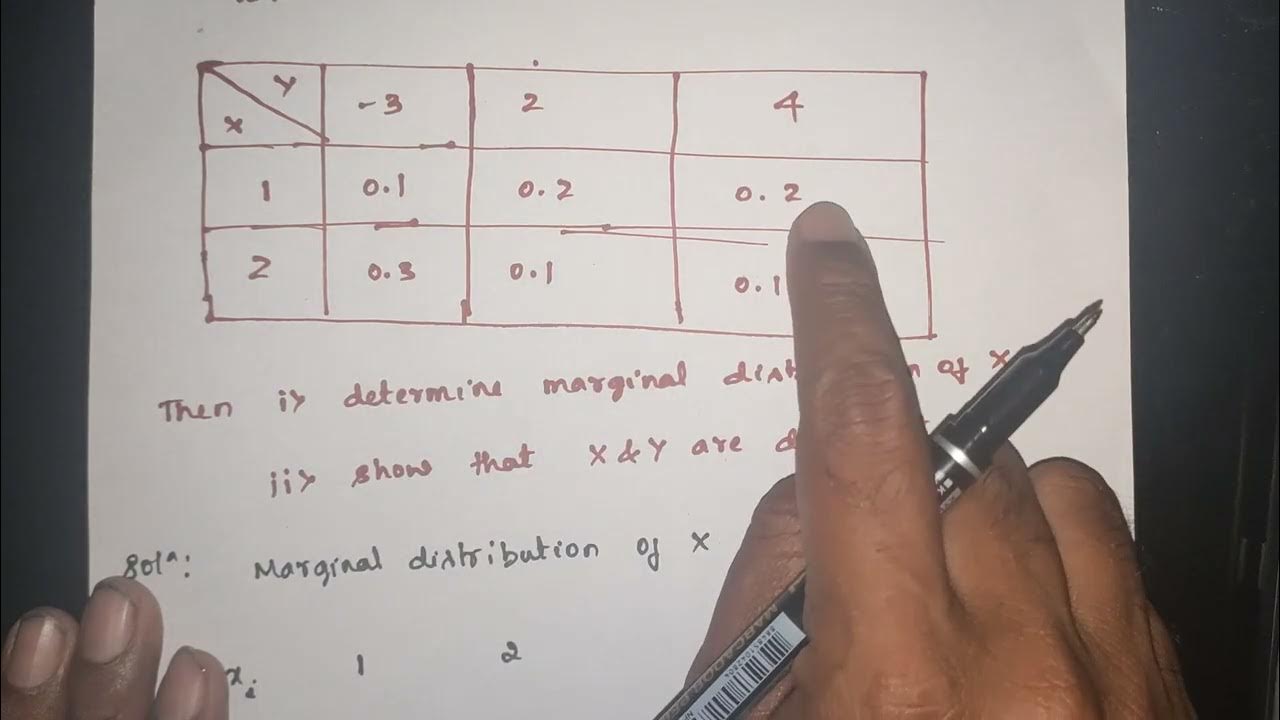 Y
X -3 2 4
1 0.1 0.2 0.2
2 0.3 0.1 0.1
Then i> determine marginal of X
ii> show that X & Y are
Solⁿ: Marginal distribution of X
xᵢ 1 2